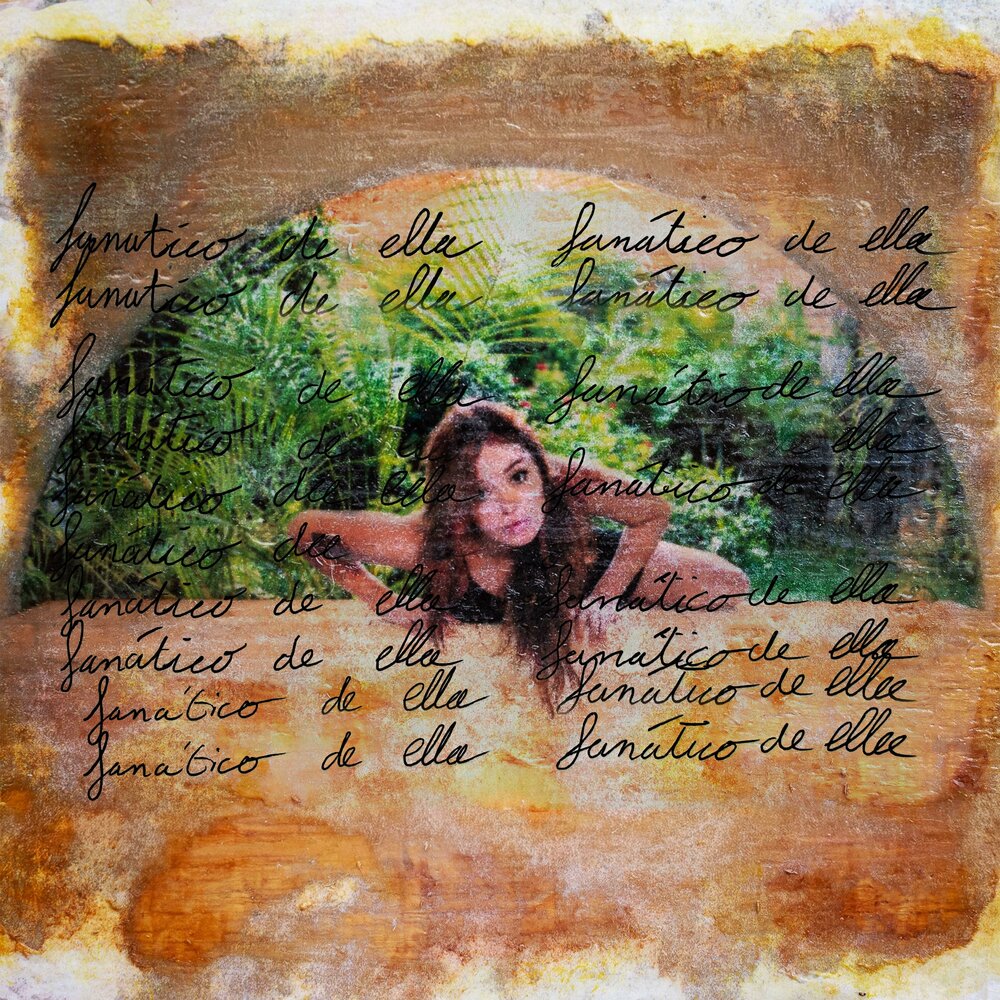 fanático de ella fanático de ella
fanático de ella fanático de ella
fanático de ella fanático de ella
fanático de ella
fanático de ella fanático de ella
fanático de
fanático de ella fanático de ella
fanático de ella fanático de ella
fanático de ella fanático de ella
fanático de ella fanático de ella